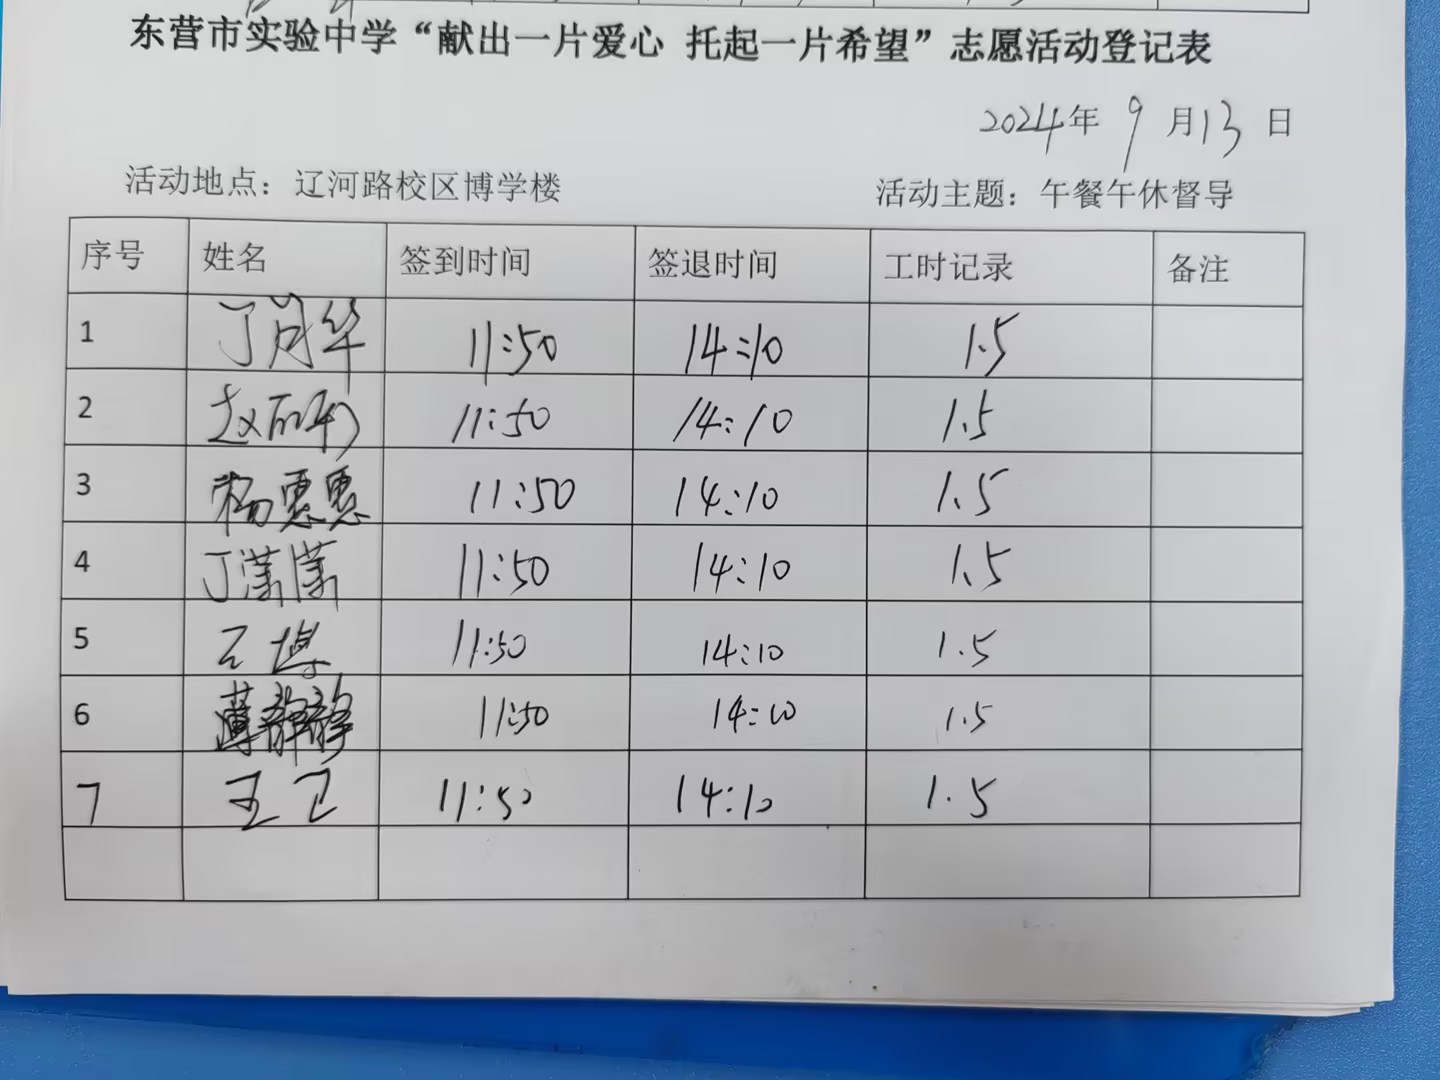 东营市实验中学“献出一片爱心 托起一片希望”志愿活动登记表
2024年 9 月 13 日
活动地点：辽河路校区博学楼 活动主题：午餐午休督导
序号 姓名 签到时间 签退时间 工时记录 备注
1 丁月华 11:50 14:10 1.5
2 赵 11:50 14:10 1.5
3 杨惠惠 11:50 14:10 1.5
4 丁潇潇 11:50 14:10 1.5
5 11:50 14:10 1.5
6 薄静静 11:50 14:10 1.5
7 王卫 11:50 14:10 1.5